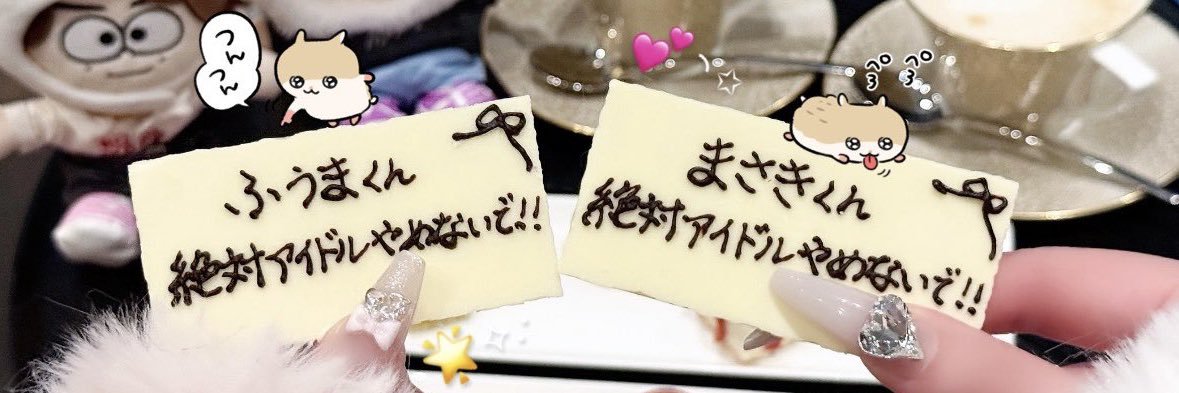 つんつん
ふうまくん
絶対アイドルやめないで!!
ペロペロ
まさきくん
絶対アイドルやめないで!!